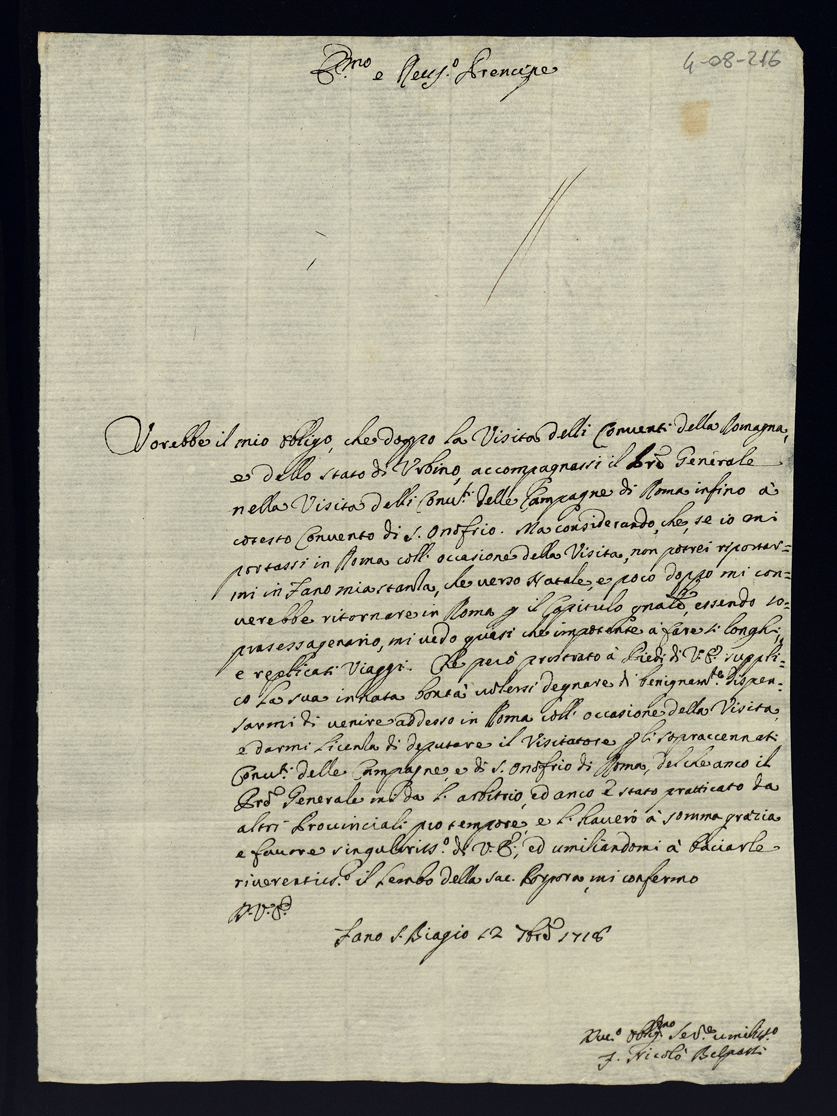 4-08-216
Em̃o e Reu.s.o Prencipe
Vorebbe il mio obligo, che doppo la Visita delli Conventi della Romagna,
e dello stato di Urbino, accompagnassi il Prẽ Generale
nella Visita delli Conu.ti delle Campagne di Roma infino à
cotesto Convento di S. Onofrio. Ma considerando, che, se io mi
portassi in Roma coll' occasione della Visita, non potrei riportar=
mi in Fano mia stanza, che verso Natale, e poco doppo mi con=
verebbe ritornare in Roma p il Capitulo gnalẽ, essendo so=
prasessagenario, mi vedo quasi che impotente à fare sì longhi,
e replicati Viaggi. Che però prostrato à Piedi di V. E. suppli=
co la sua innata bontà volersi degnare di benignam.te dispen=
sarmi di venire addesso in Roma coll' occasione della Visita,
e darmi licenza di deputare il Visitatore p li sopraccennati
Conu.ti delle Campagne, e di S. Onofrio di Roma, del che anco il
Prẽ Generale mi da l' arbitrio, ed anco è stato pratticato da
altri Provinciali pro tempore, e l' haverò à somma grazia
e favore singulariss.o di V. E., ed umiliandomi à baciarle
riverentiss.e il lembo della Sac. Porpora, mi confermo
D. V. E.
Fano S. Biagio 12 7brẽ 1718
obblig.mo Ser.e umiliss.o
F. Nicolò Belpassi